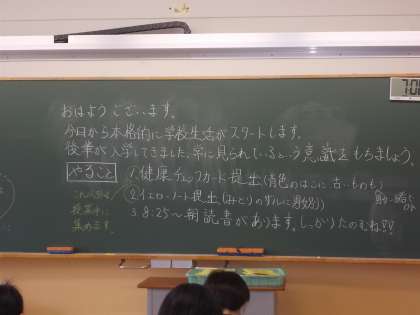 おはようございます。
今日から本格的に学校生活がスタートします。
後輩が入学してきました。常に見られているという意識をもちましょう。
やること
1.健康チェックカード提出(青色のはこに、古いものも)
2.イエローノート提出(みどりのかごに男女別)
3. 8:25〜朝読書があります。しっかりたのむね!!
これらは
授業中に
集めます。